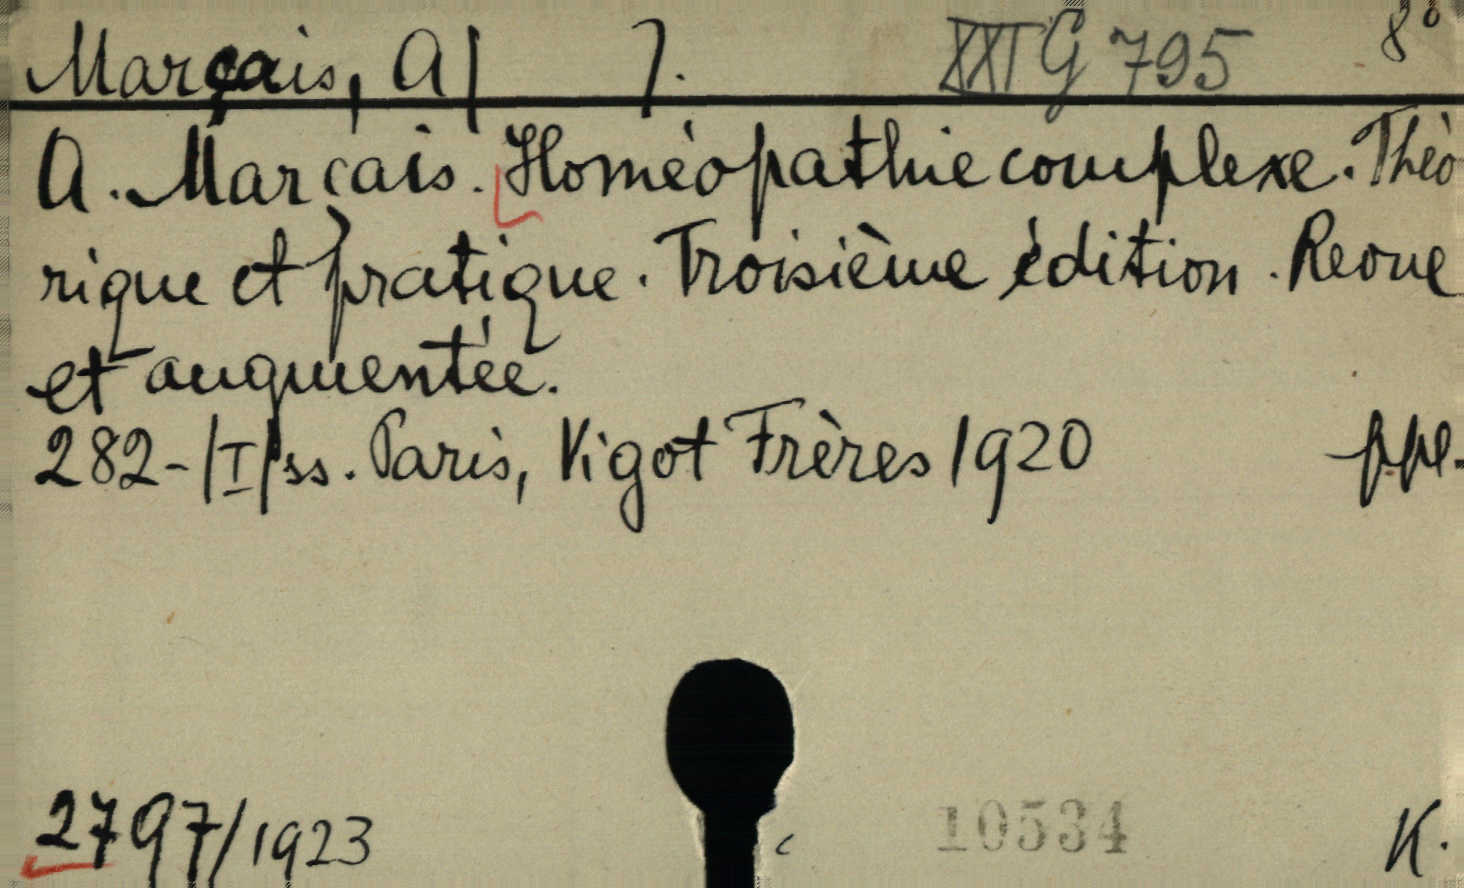 Marçais, A| 7. XXI G 795 8°
A. Marçais. Homéopathie complexe. Théo
rique et pratique. Troisième édition. Revue
et augmentée.
282-|I| ss. Paris, Vigot Frères 1920 ppl.
2797/1923 10534 K.